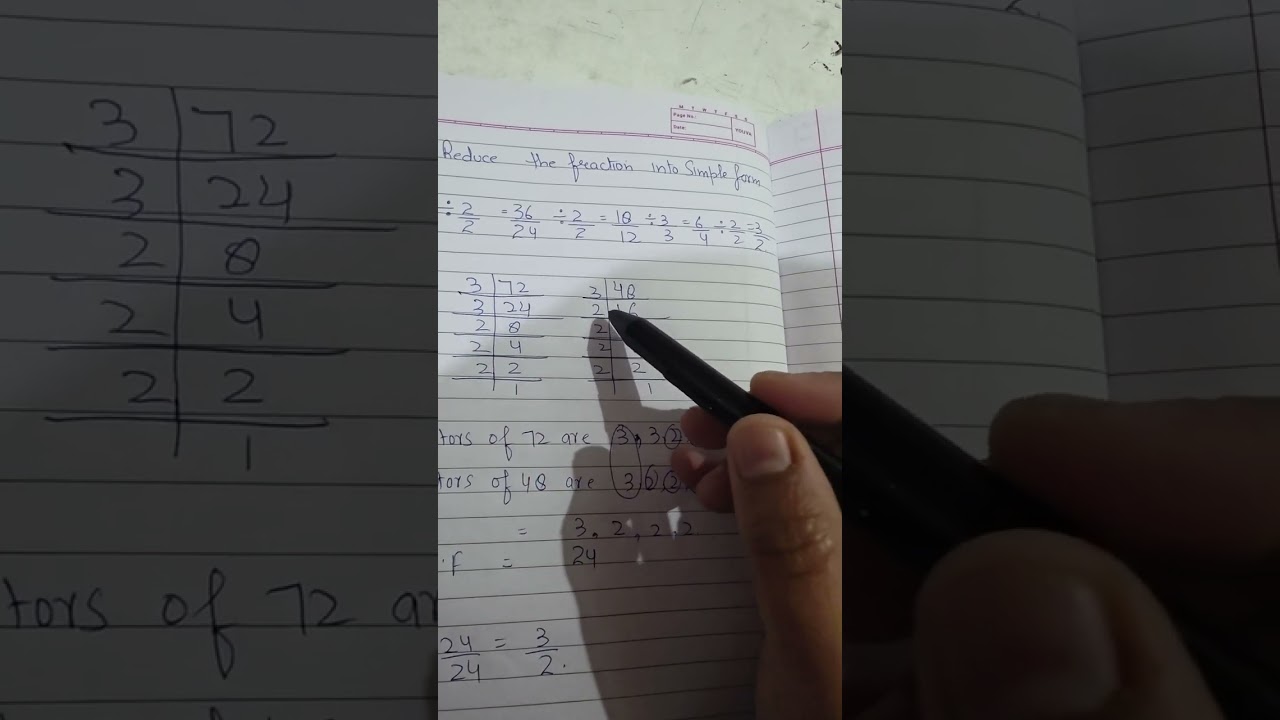 M T W T F S S
Page No.:
Date:
YOUVA
Reduce the fraction into Simple form
÷ 2/2 = 36/24 ÷ 2/2 = 18/12 ÷ 3/3 = 6/4 ÷ 2/2 = 3/2
3 | 72
3 | 24
2 | 8
2 | 4
2 | 2
1
3 | 48
2 | 16
2
2
2 | 2
1
tors of 72 are 3, 3, 2
tors of 48 are 3
= 3, 2, 2, 2
F = 24
24/24 = 3/2.
3 | 72
3 | 24
2 | 8
2 | 4
2 | 2
1
tors of 72 ar